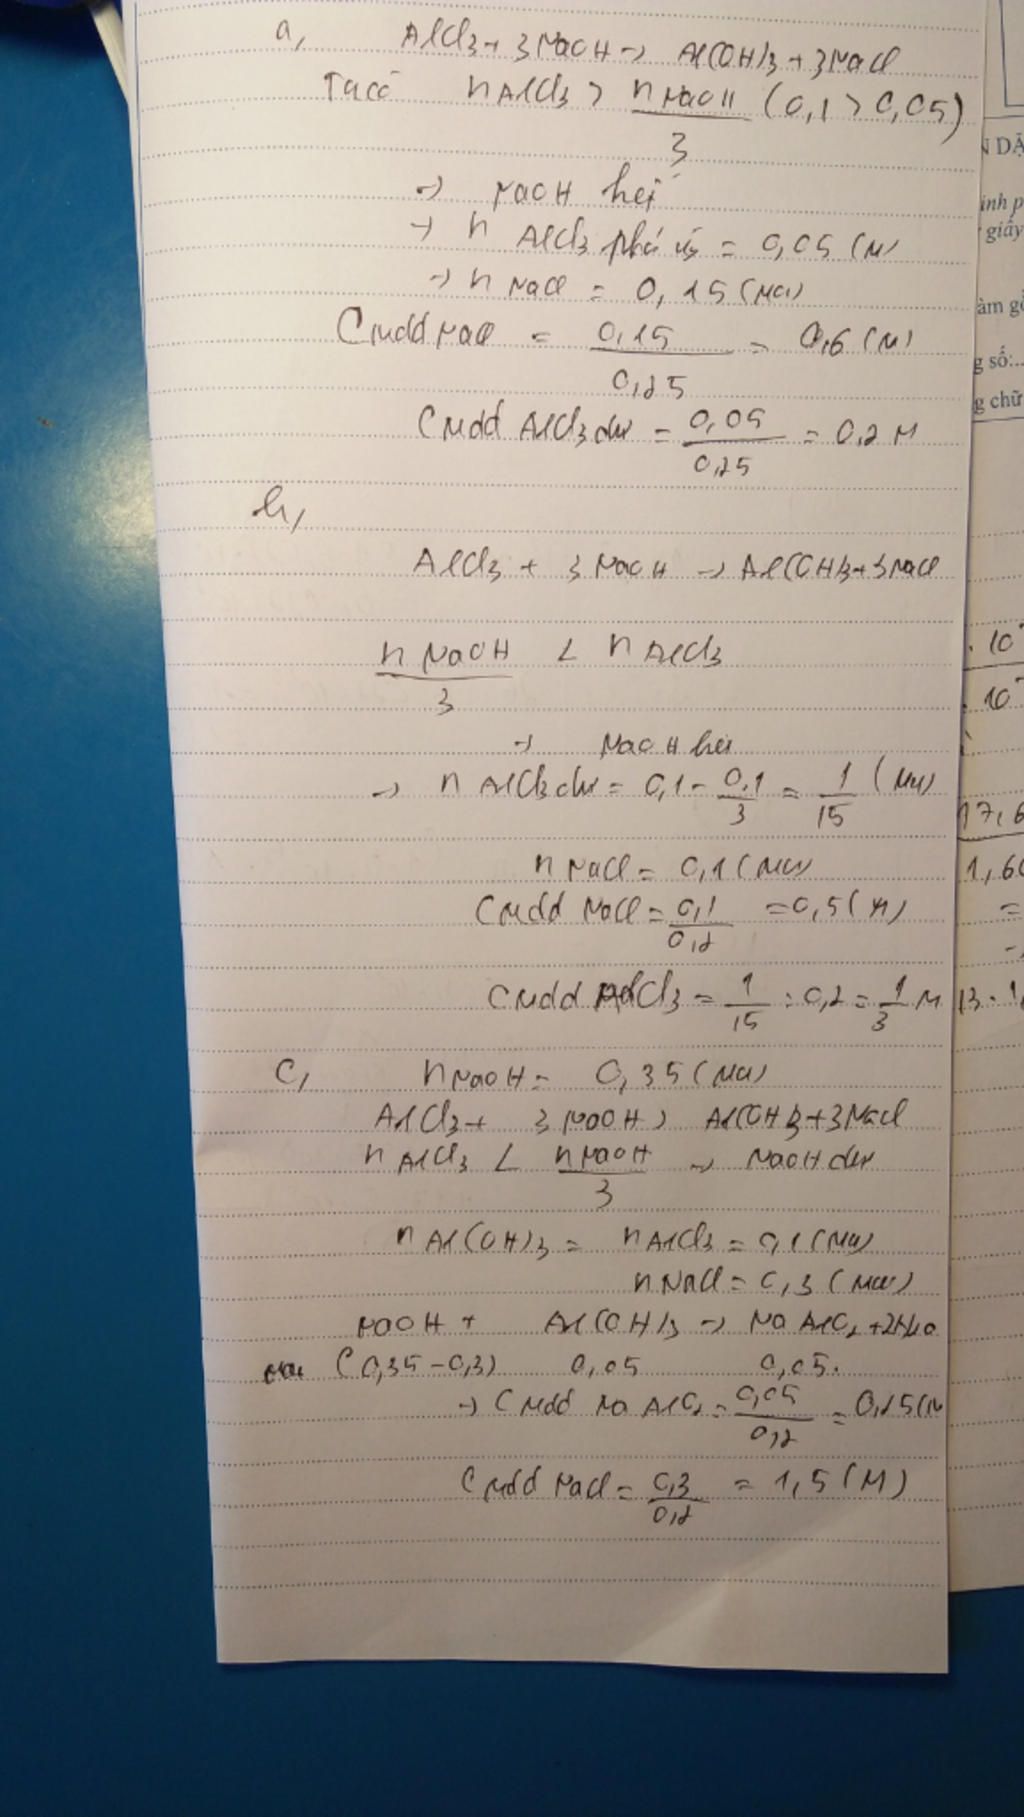 a,
AlCl3 + 3NaOH → Al(OH)3 + 3NaCl
Ta có nAlCl3 > nNaOH/3 (0,1 > 0,05)
→ NaOH hết
→ n AlCl3 phả ứ = 0,05 (M
→ n NaCl = 0,15 (Mol)
CMdd NaCl = 0,15/0,25 = 0,6 (M)
CMdd AlCl3 dư = 0,05/0,25 = 0,2 M
b,
AlCl3 + 3NaOH → Al(OH)3 + 3NaCl
nNaOH/3 < nAlCl3
→ NaOH hết
→ n AlCl3 dư = 0,1 - 0,1/3 = 1/15 (Mol)
nNaCl = 0,1 (Mol)
CMdd NaCl = 0,1/0,2 = 0,5 (M)
CMdd AlCl3 = 1/15 : 0,2 = 1/3 M
c, nNaOH = 0,35 (Mol)
AlCl3 + 3NaOH → Al(OH)3 + 3NaCl
nAlCl3 < nNaOH/3 → NaOH dư
nAl(OH)3 = nAlCl3 = 0,1 (Mol)
nNaCl = 0,3 (Mol)
NaOH + Al(OH)3 → NaAlO2 + 2H2O
(0,35 - 0,3) 0,05 0,05.
→ CMdd NaAlO2 = 0,05/0,2 = 0,25 (M
CMdd NaCl = 0,3/0,2 = 1,5 (M)
giấy
g số:...
g chữ
17,6